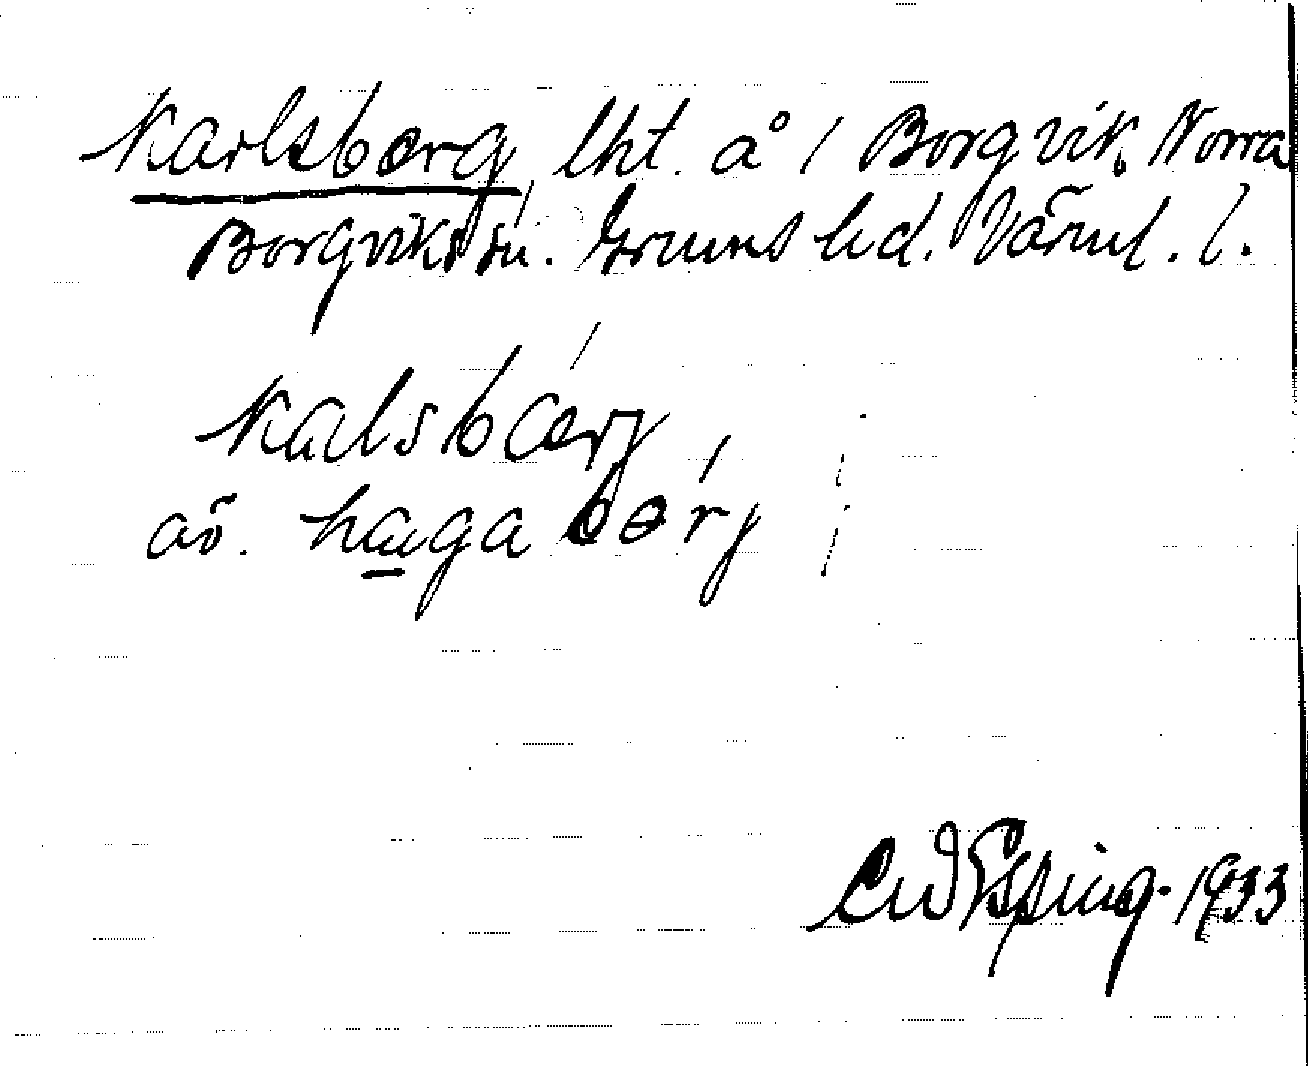 Karlsberg, lht. å / Borgvik, Norra
Borgviks sn. Grums hd. Värml. l.
kalsbærj,
av. hagabərj
1933